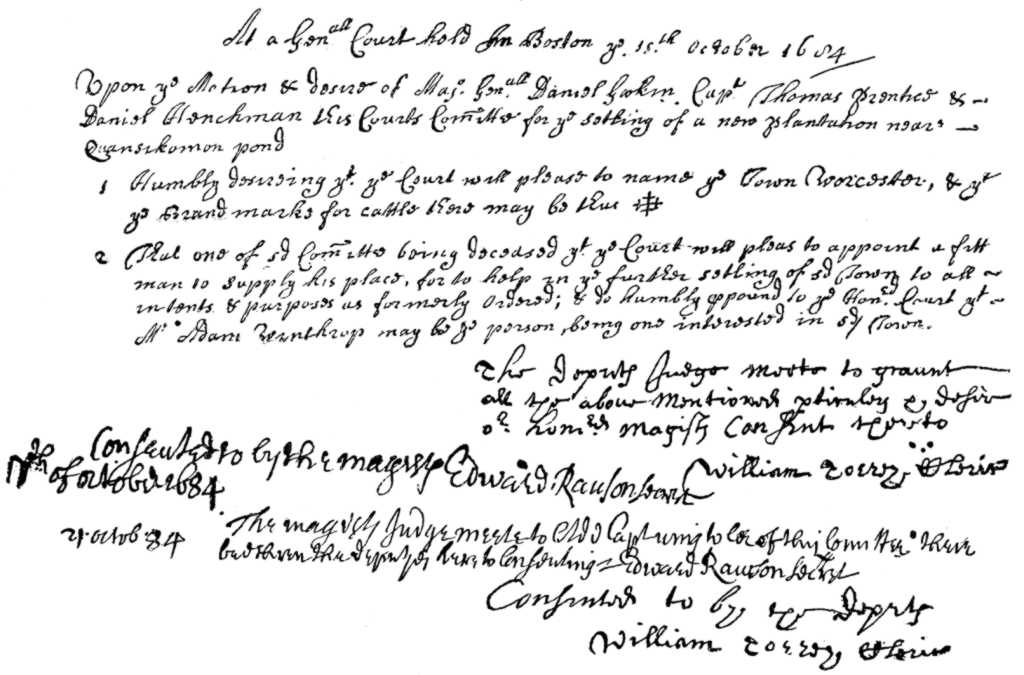 At a Genall Court held In Boston ye. 15.th October 1684
Upon ye Motion & desire of Maj. Genall Daniel Gookin. Capt Thomas Prentice & –
Daniel Henchman this Courts Comitte for ye setling of a new plantation near –
Quansikomon pond
1 Humbly desireing yt. ye Court will please to name ye Town Worcester, & yt
ye Brand marke for cattle there may be thus
2 That one of sd Comitte being deceased yt ye Court will pleas to appoint a fitt
man to supply his place, for to help in ye further setling of sd Town to all ~
intents & purposes as formerly Ordered; & do humbly ppound to ye Hond. Court yt ~
Mr Adam Winthrop may be ye person, being one interested in sd Town.
The Deputs Judge meete to graunt
all the above mentioned pticulers & desire
or. honred magists Consent thereto
Consented to by the magists Edward Rawson Secret William Torrey Cleric
of october 1684
21 octob 84 The magists Judge meete to Add Capt of this Comittee there
the deputyes hereto Consenting Edward Rawson Secret
Consented to by the Deputs
William Torrey Cleric